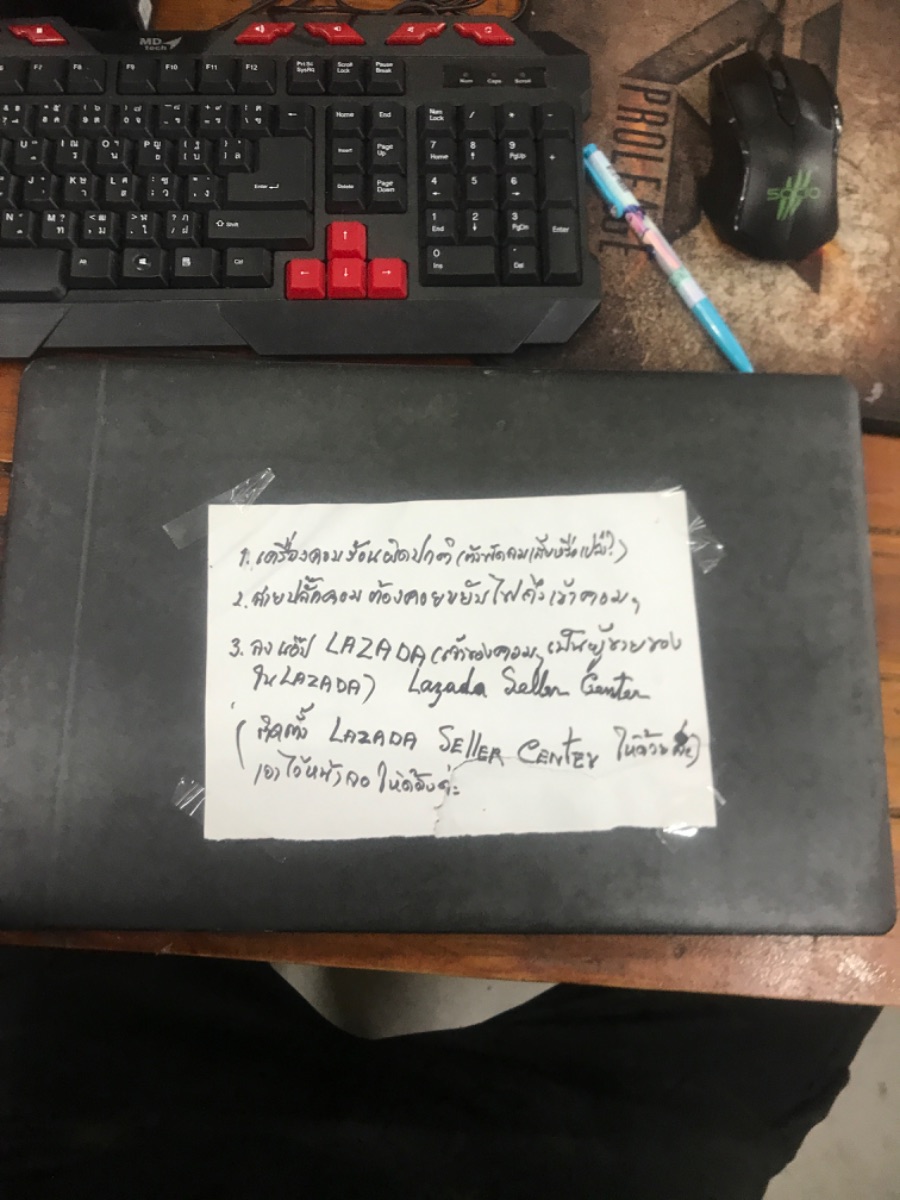 MD
tech
F7 F8 F9 F10 F11 F12 Prt Sc SysRq Scroll Lock Pause Break
Num Caps Scroll
Home End Num Lock / * -
Insert Page Up 7 Home 8 9 PgUp +
Enter Delete Page Down 4 5 6
Shift 1 End 2 3 PgDn Enter
Alt Ctrl 0 Ins Del
PROLEASE
1. เครื่องคอมร้อนผิดปกติ (ตัวพัดลมเสียหรือเปล่า?)
2. สายปลั๊กคอม ต้องคอยขยับไฟถึงเข้าคอมฯ
3. ลงแอ๊ป LAZADA (เจ้าของคอมฯ เป็นผู้ขายของ
ใน LAZADA) Lazada Seller Center
(ติดตั้ง LAZADA SELLER CENTER ให้ด้วย)
เอาไว้หน้าจอ ให้ด้วยค่ะ